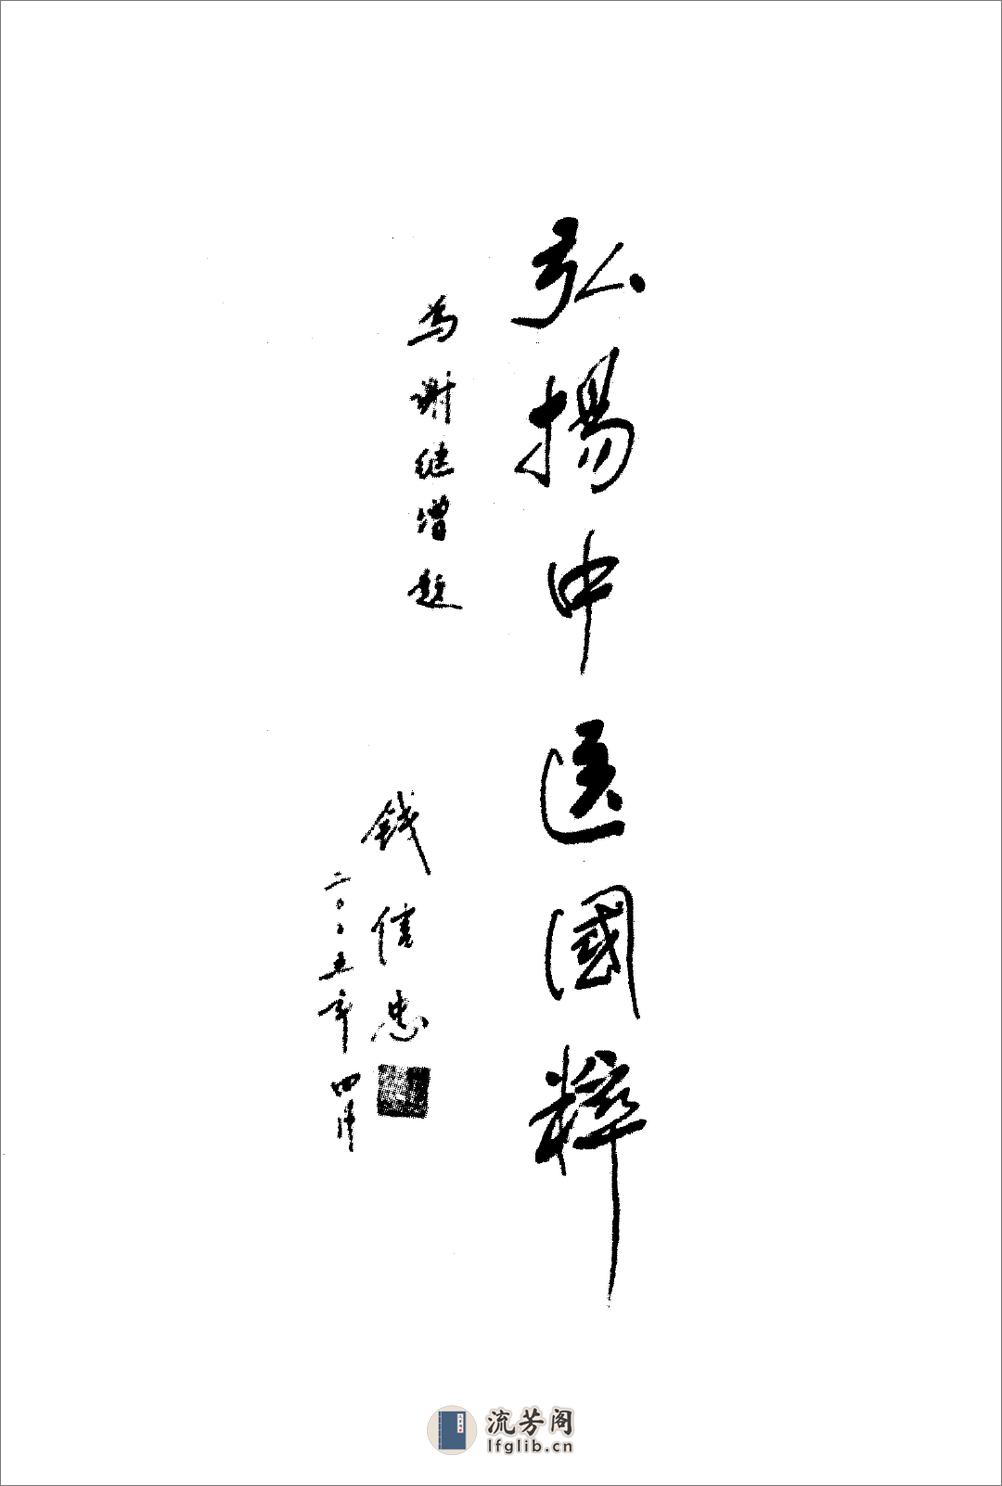 弘揚中医國粹
为谢继增题
钱信忠
二〇〇五年四月
流芳阁
lfglib.cn